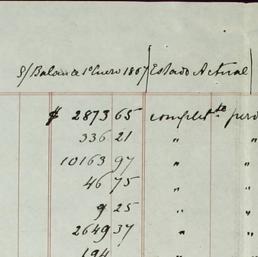 S/ Balance 1º Enero 1867 Estado Actual
$ 2873 65 complet.te perd
336 21 "
10163 97 "
46 75 "
9 25 "
2649 37 "
194